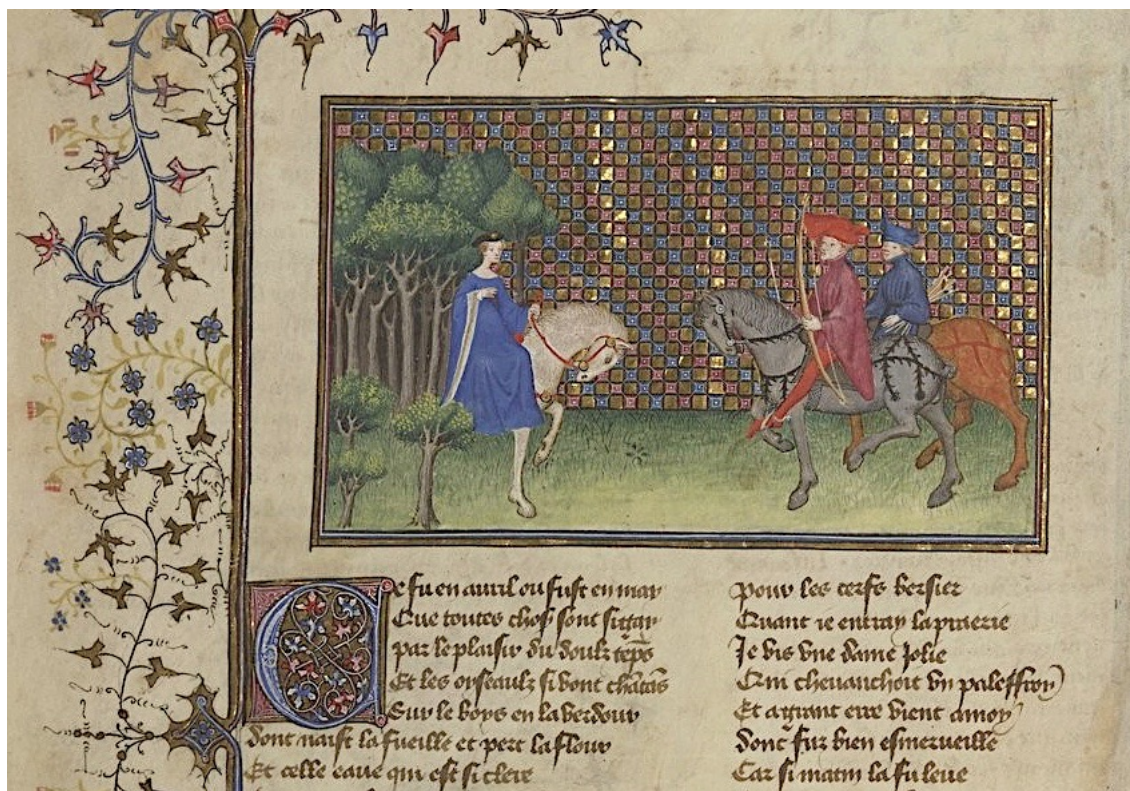 Ce fu en auril ou fust en may
Que toutes chos sont si gay
par le plaisir du doulz tēps
Et les oyseaulz si vont chātās
Sur le boys en la verdour
dont naist la fueille et pert la flour
Et celle eaue qui est si clere
pour les cerfs bersier
Quant ie entray la praerie
Je vis vne dame Jolie
Qui cheuauchoit vn paleffroy
Et a grant erre vient a moy
dont fuz bien esmerueille
Car si matin la fu leue